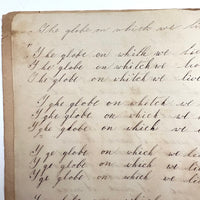 The globe on which we liv
The globe on whith we live
The globe on whitch we liv
The globe on which we live
The globe on whitch we
The globe on which we
The globe on which we
Ye globe on which we l
Ye globe on which we li
Ye globe on which we l